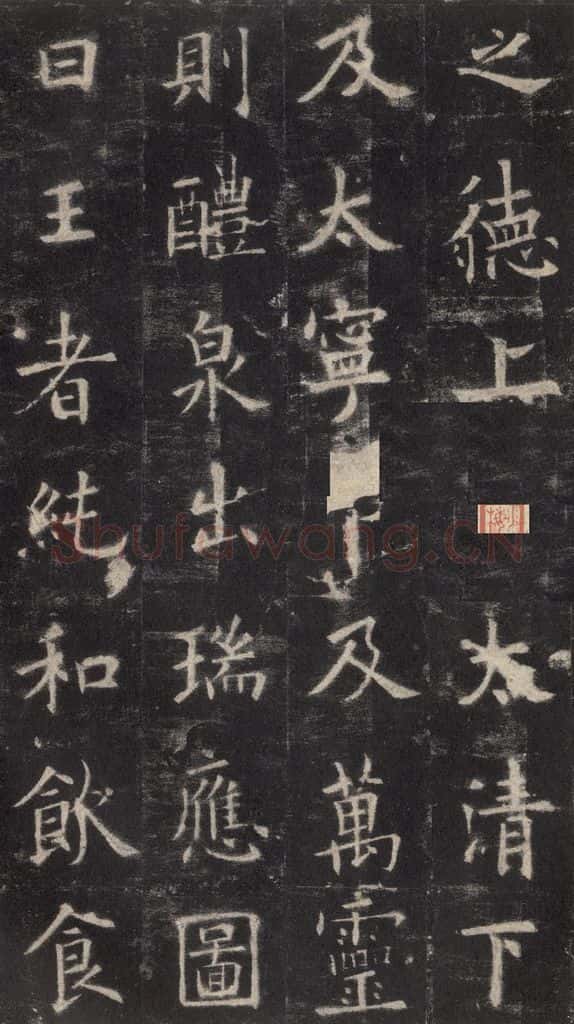 之德上太清下
及太寧及萬靈
則醴泉出瑞應圖
曰王者純和飲食
Shufawang.CN